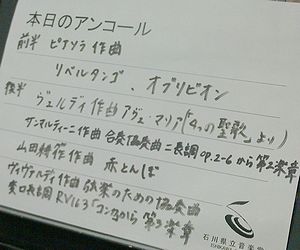 本日のアンコール
前半 ピアソラ作曲
リベルタンゴ、オブリビオン
後半 ヴェルディ作曲アヴェ・マリア(「4つの聖歌」より)
サンマルティーニ作曲 合奏協奏曲ニ長調op.2-6から第2楽章
山田耕作作曲 赤とんぼ
ヴィヴァルディ作曲 弦楽のための協奏曲
変ロ長調 RV163「コンカ」から第3楽章
石川県立音楽堂